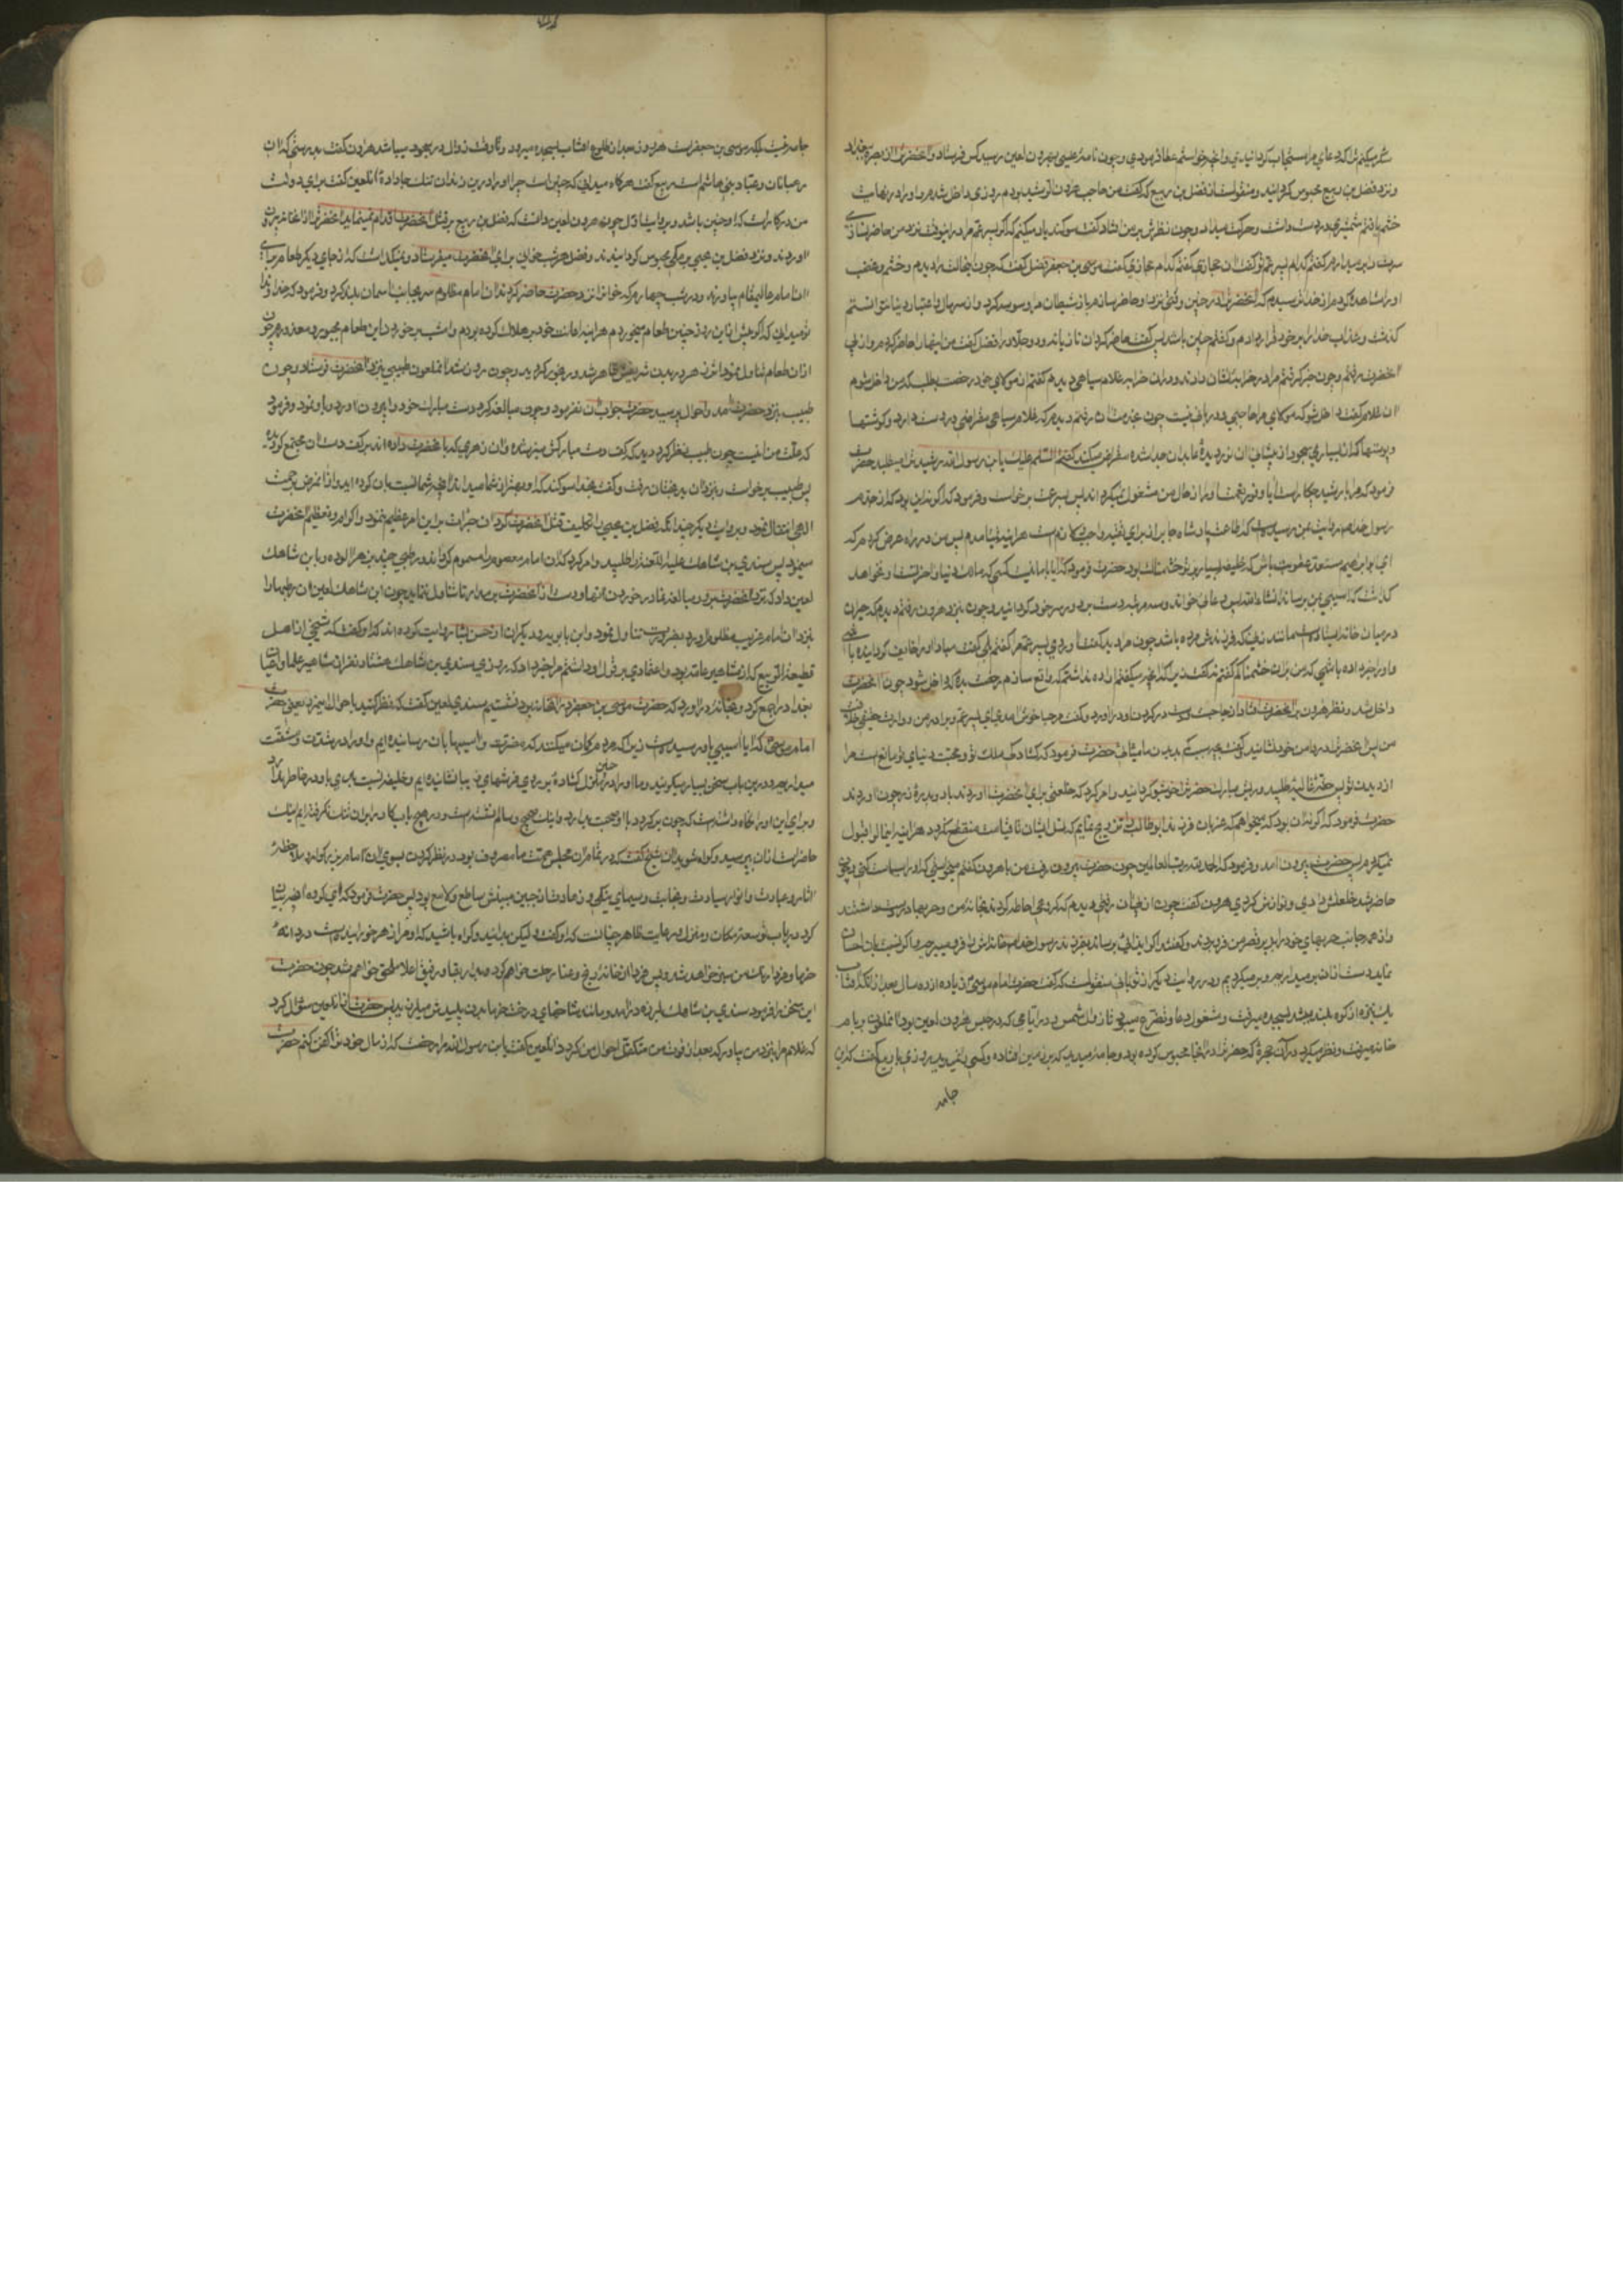 شکر میکنم ترا که دعای مرا مستجاب گردانیدی و آنچه خواستم عطا فرمودی و چون نامهٔ عیسی بهرون لعین رسید کس فرستاد و آنحضرت را از بصره ببغداد
و نزد فضل بن ربیع محبوس گردانید و منقولست از فضل بن ربیع که گفت من حاجب هرون الرشید بودم روزی داخل شدم و او را در نهایت
خشم یافتم شمشیری در دست داشت و حرکت میداد و چون نظرش بر من افتاد گفت سوگند یاد میکنم که اگر پسر عم مرا در اینوقت نزد من حاضر نسازی
سرت را بر میدارم گفتم کدام پسر عم تو گفت آن حجازی گفتم کدام حجازی گفت موسی بن جعفر فضل گفت که چون بحالت او را دیدم و خشم و غضب
او را مشاهده کردم از خدا ترسیدم که آنحضرت را در چنین وقتی نزد او حاضر سازم باز شیطان مرا وسوسه کرد و از سر مال و اعتبار دنیا نتوانستم
گذشت و عذاب خدا را بر خود قرار دادم و گفتم چنین باشد پس گفت حاضر گردان تازیانه و دو جلاد را فضل گفت من اینها را حاضر کردم و از پی
آنحضرت رفتم و چون خبر گرفتم مرا در خرابه نشان دادند و در آن خرابه غلام سیاهی دیدم گفتم از مولای خود رخصت بطلب که من داخل شوم
آن غلام گفت داخل شو که مولای مرا حاجبی و دربانی نیست چون بخدمتش رفتم دیدم که غلام سیاهی مقراضی در دست دارد و گوشتها
و پوستها که از بسیاری سجود از پیشانی آن نور دیدهٔ عابدان جدا شده مقراض میکند گفتم السلام علیک یابن رسول الله رشید ترا میطلبد حضرت
فرمود که مرا با رشید چکار است آیا وفور نعمت او را از حال من مشغول نمیگرداند پس بسرعت برخاست و فرمود که اگر نه این بود که از جدم
رسول خدا بمن روایت رسیدست که اطاعت پادشاه جابر از برای تقیه واجبست هر آینه نمیآمدم پس من در راه عرض کردم که
ای ابو ابراهیم مستعد عقوبت باش که خلیفه بسیار بر تو خشمناک بود حضرت فرمود که آیا با ما نیست کسی که مالک دنیا و آخرتست و نخواهد
گذاشت که آسیبی بمن برساند انشاء الله پس دعائی خواند و سه مرتبه دست بر دور سر خود گردانید و چون بنزد هرون رفتم دیدم که حیران
در میان خانه ایستادست مانند زنی که فرزندش مرده باشد چون مرا دید گفت آوردی پسر عم مرا گفتم بلی گفت مبادا او را خایف گردانیده باشی
و او را خبر داده باشی که من بر او خشمناکم گفتم نه گفت
داخل شد و نظر هرون بر آنحضرت افتاد از جا جست و دست در گردن او در آورد و گفت مرحبا خوش آمدی ای پسر عم و برادر من و وارث
من پس آنحضرت را در دامن خود نشانید و گفت بچه سبب کم بدیدن ما میآئی حضرت فرمود که گشادگی ملک تو و محبت دنیای تو مانع است مرا
از دیدن تو پس حقهٔ غالیه طلبید و ریش مبارک حضرت را خوشبو گردانید و امر کرد که خلعتی برای آنحضرت آوردند با دو بدرهٔ زر چون آوردند
حضرت فرمود که اگر نه آن بود که میخواهم که عزبان فرزندان ابو طالب را تزویج نمایم که نسل ایشان تا قیامت منقطع نگردد هر آینه این مال را قبول
نمیکردم پس حضرت بیرون آمد و فرمود که الحمد لله رب العالمین چون حضرت بیرون رفت من با هرون گفتم میخواستی که او را سیاست کنی و چون
حاضر شد خلعتش دادی و نوازش کردی هرون گفت چون از پی آن رفتی دیدم که گروهی احاطه کردند بخانهٔ من و حربها در دست داشتند
و از همه جانب حربهای خود را بر زیر قصر من فرو بردند و گفتند اگر ایذائی برساند بفرزند رسول خدا خانه اش را فرو میبریم و اگر نسبت باو احسان
نماید دست از آن بر میداریم و بر میگردیم و در روایت دیگر از ثوبانی منقولست که گفت حضرت امام موسی زیاده از ده سال بعد از آنکه آفتاب
یک نیزه از کوه بلند میشد بسجده میرفت و مشغول دعا و تضرع میبود تا زوال شمس و در ایامی که در حبس هرون لعین بود آنملعون بر بام
خانه میرفت و نظر میکرد در آن حجرهٔ که حضرت را در آنجا محبوس کرده بود و جامهٔ میدید که بر زمین افتاده و کسی را نمیدید روزی با ربیع گفت که این
جامه
جامه نیست بلکه موسی بن جعفر است هر روز بعد از طلوع آفتاب بسجده میرود و تا وقت زوال در سجود میباشد هرون گفت بدرستی که او از
رهبانان و عباد بنی هاشم است ربیع گفت هرگاه میدانی که چنین است چرا او را درین زندان تنگ جا داده آنلعین گفت برای دولت
من در کار است که او چنین باشد و بروایت اول چون هرون لعین دانست که فضل بن ربیع بر قتل آنحضرت اقدام نمینماید آنحضرت را از خانه او بیرون
آوردند و نزد فضل بن یحیی برمکی محبوس گردانیدند و فضل هر شب خوانی برای آنحضرت میفرستاد و نمیگذاشت که از جای دیگر طعام برای
آن امام عالیمقام بیاورند و در شب چهارم که خوانرا نزد حضرت حاضر کردند آن امام مظلوم سر بجانب آسمان بلند کرد و فرمود که خداوندا
تو میدانی که اگر پیش ازین روز چنین طعام میخوردم هر آینه اعانت خود بر هلاک کرده بودم و امشب در خوردن این طعام مجبور و معذورم چون
از آن طعام تناول نمود اثر زهر در بدن شریفش ظاهر شد و رنجور گردید و چون روز شد آنملعون طبیبی بنزد آنحضرت فرستاد و چون
طبیب بنزد حضرت آمد و احوال پرسید حضرت جواب آن نفرمود و چون مبالغه کرد دست مبارک خود را بیرون آورد و باو نمود و فرمود
که علت من اینست چون طبیب نظر کرد دید که کف دست مبارکش سبز شده و آن زهری که بآنحضرت داده اند در کف دستش مجتمع گردیده
پس طبیب برخاست و بنزد آن بدبختان رفت و گفت بخدا سوگند که او بهتر از شما میداند آنچه شما نسبت بآن کرده اید و از آن مرض برحمت
الهی انتقال نمود و بروایت دیگر چندانکه فضل بن یحیی را تکلیف قتل آنحضرت کردند آن جرأت بر این امر عظیم ننمود و اکرام و تعظیم آنحضرت
مینمود پس سندی بن شاهک علیه اللعنه را طلبید و امر کرد که آن امام معصوم را مسموم گرداند و رطبی چند بزهر آلوده و بابن شاهک
لعین داد که نزد آنحضرت ببرد و مبالغه نماید در خوردن آنها و دست از آنحضرت بر ندارد تا تناول نماید چون ابن شاهک لعین آن رطبها را
بنزد آن امام غریب مظلوم آورد بضرورت تناول نمود و ابن بابویه و دیگران از حسن بن بشار روایت کرده اند که او گفت که شیخی از اهل
قطیعة الربیع که از مشاهیر عامه بود و اعتمادی بر قول او داشتم مرا خبر داد که روزی سندی بن شاهک هشتاد نفر از مشاهیر علما و اعیان
بغداد را جمع کرد و بخانهٔ در آورد که حضرت موسی بن جعفر در آنخانه بود چون نشستیم سندی لعین گفت که نظر کنید باحوال این مرد یعنی حضرت
امام موسی که آیا آسیبی باو رسیدست زیرا که مردم گمان میکنند که مضرت و آسیبها باو رسانیده ایم و او را در شدت و مشقت
میداریم و درین باب سخن بسیار میگویند و ما او را در چنین منزل گشادهٔ بر روی فرشهای زیبا نشانده ایم و خلیفه نسبت باو بدی در خاطر ندارد
و برای این او را نگاه داشته است که چون برگردد با او صحبت بدارد و اینک صحیح و سالم نشسته است و در هیچ باب کار را بر او تنگ نگرفته ایم اینک
حاضر است از آن بپرسید و گواه شوید آن شیخ گفت که در تمام آن مجلس همت ما مصروف بود در نظر کردن بسوی آن امام بزرگوار و ملاحظهٔ
آثار و عبادت و انوار سیادت و نجابت و سیمای نیکی و زهادت از جبین مبینش ساطع و لامع بود پس حضرت فرمود که ای گروه آنچه بیان
کرد در باب توسعهٔ مکان و منزل و رعایت ظاهر چنانست که او گفت لیکن بدانید و گواه باشید که او مرا زهر خورانیدست در دانهٔ
خرما و فردا رنگ من سبز خواهد شد و پس فردا از خانهٔ رنج و عنا رحلت خواهم کرد و بدار بقا و رفیق اعلا ملحق خواهم شد چون حضرت
این سخن را فرمود سندی بن شاهک بلرزه در آمد و مانند شاخهای درخت خرما بدن پلیدش میلرزید پس حضرت از آن لعین سؤال کرد
که غلام مرا بنزد من بیاور که بعد از فوت من متکفل احوال من گردد آنلعین گفت یابن رسول الله مرا رخصت ده که از مال خود ترا کفن کنم حضرت